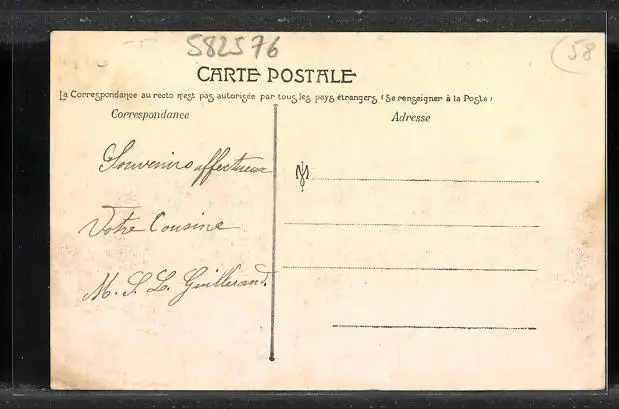 582576
58
CARTE POSTALE
La Correspondance au recto n'est pas autorisée par tous les pays étrangers (Se renseigner à la Poste)
Correspondance
Adresse
Souvenirs affectueux
M
Votre Cousine
M. S. L. Guillerand.